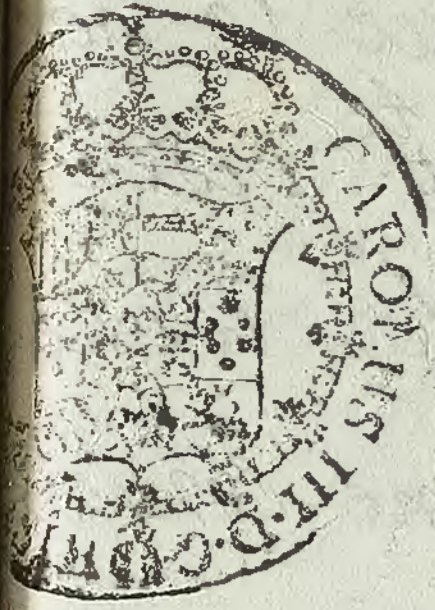 CAROLUS III·D·G·